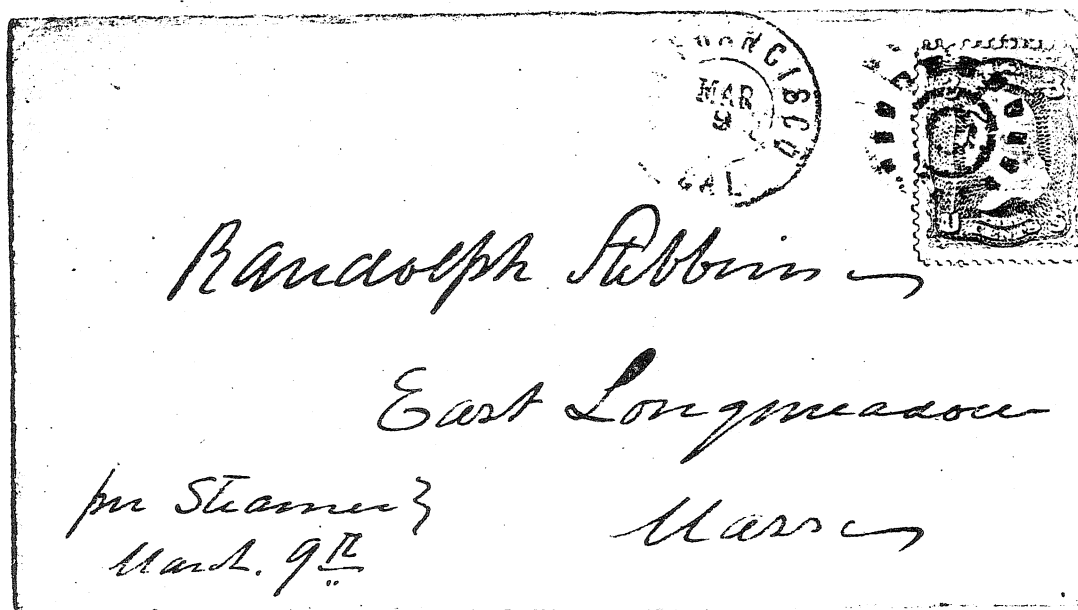 FRANCISCO
MAR
9
CAL
Randolph Stebbins
East Longmeadow
Mass
per Steamer }
March. 9th